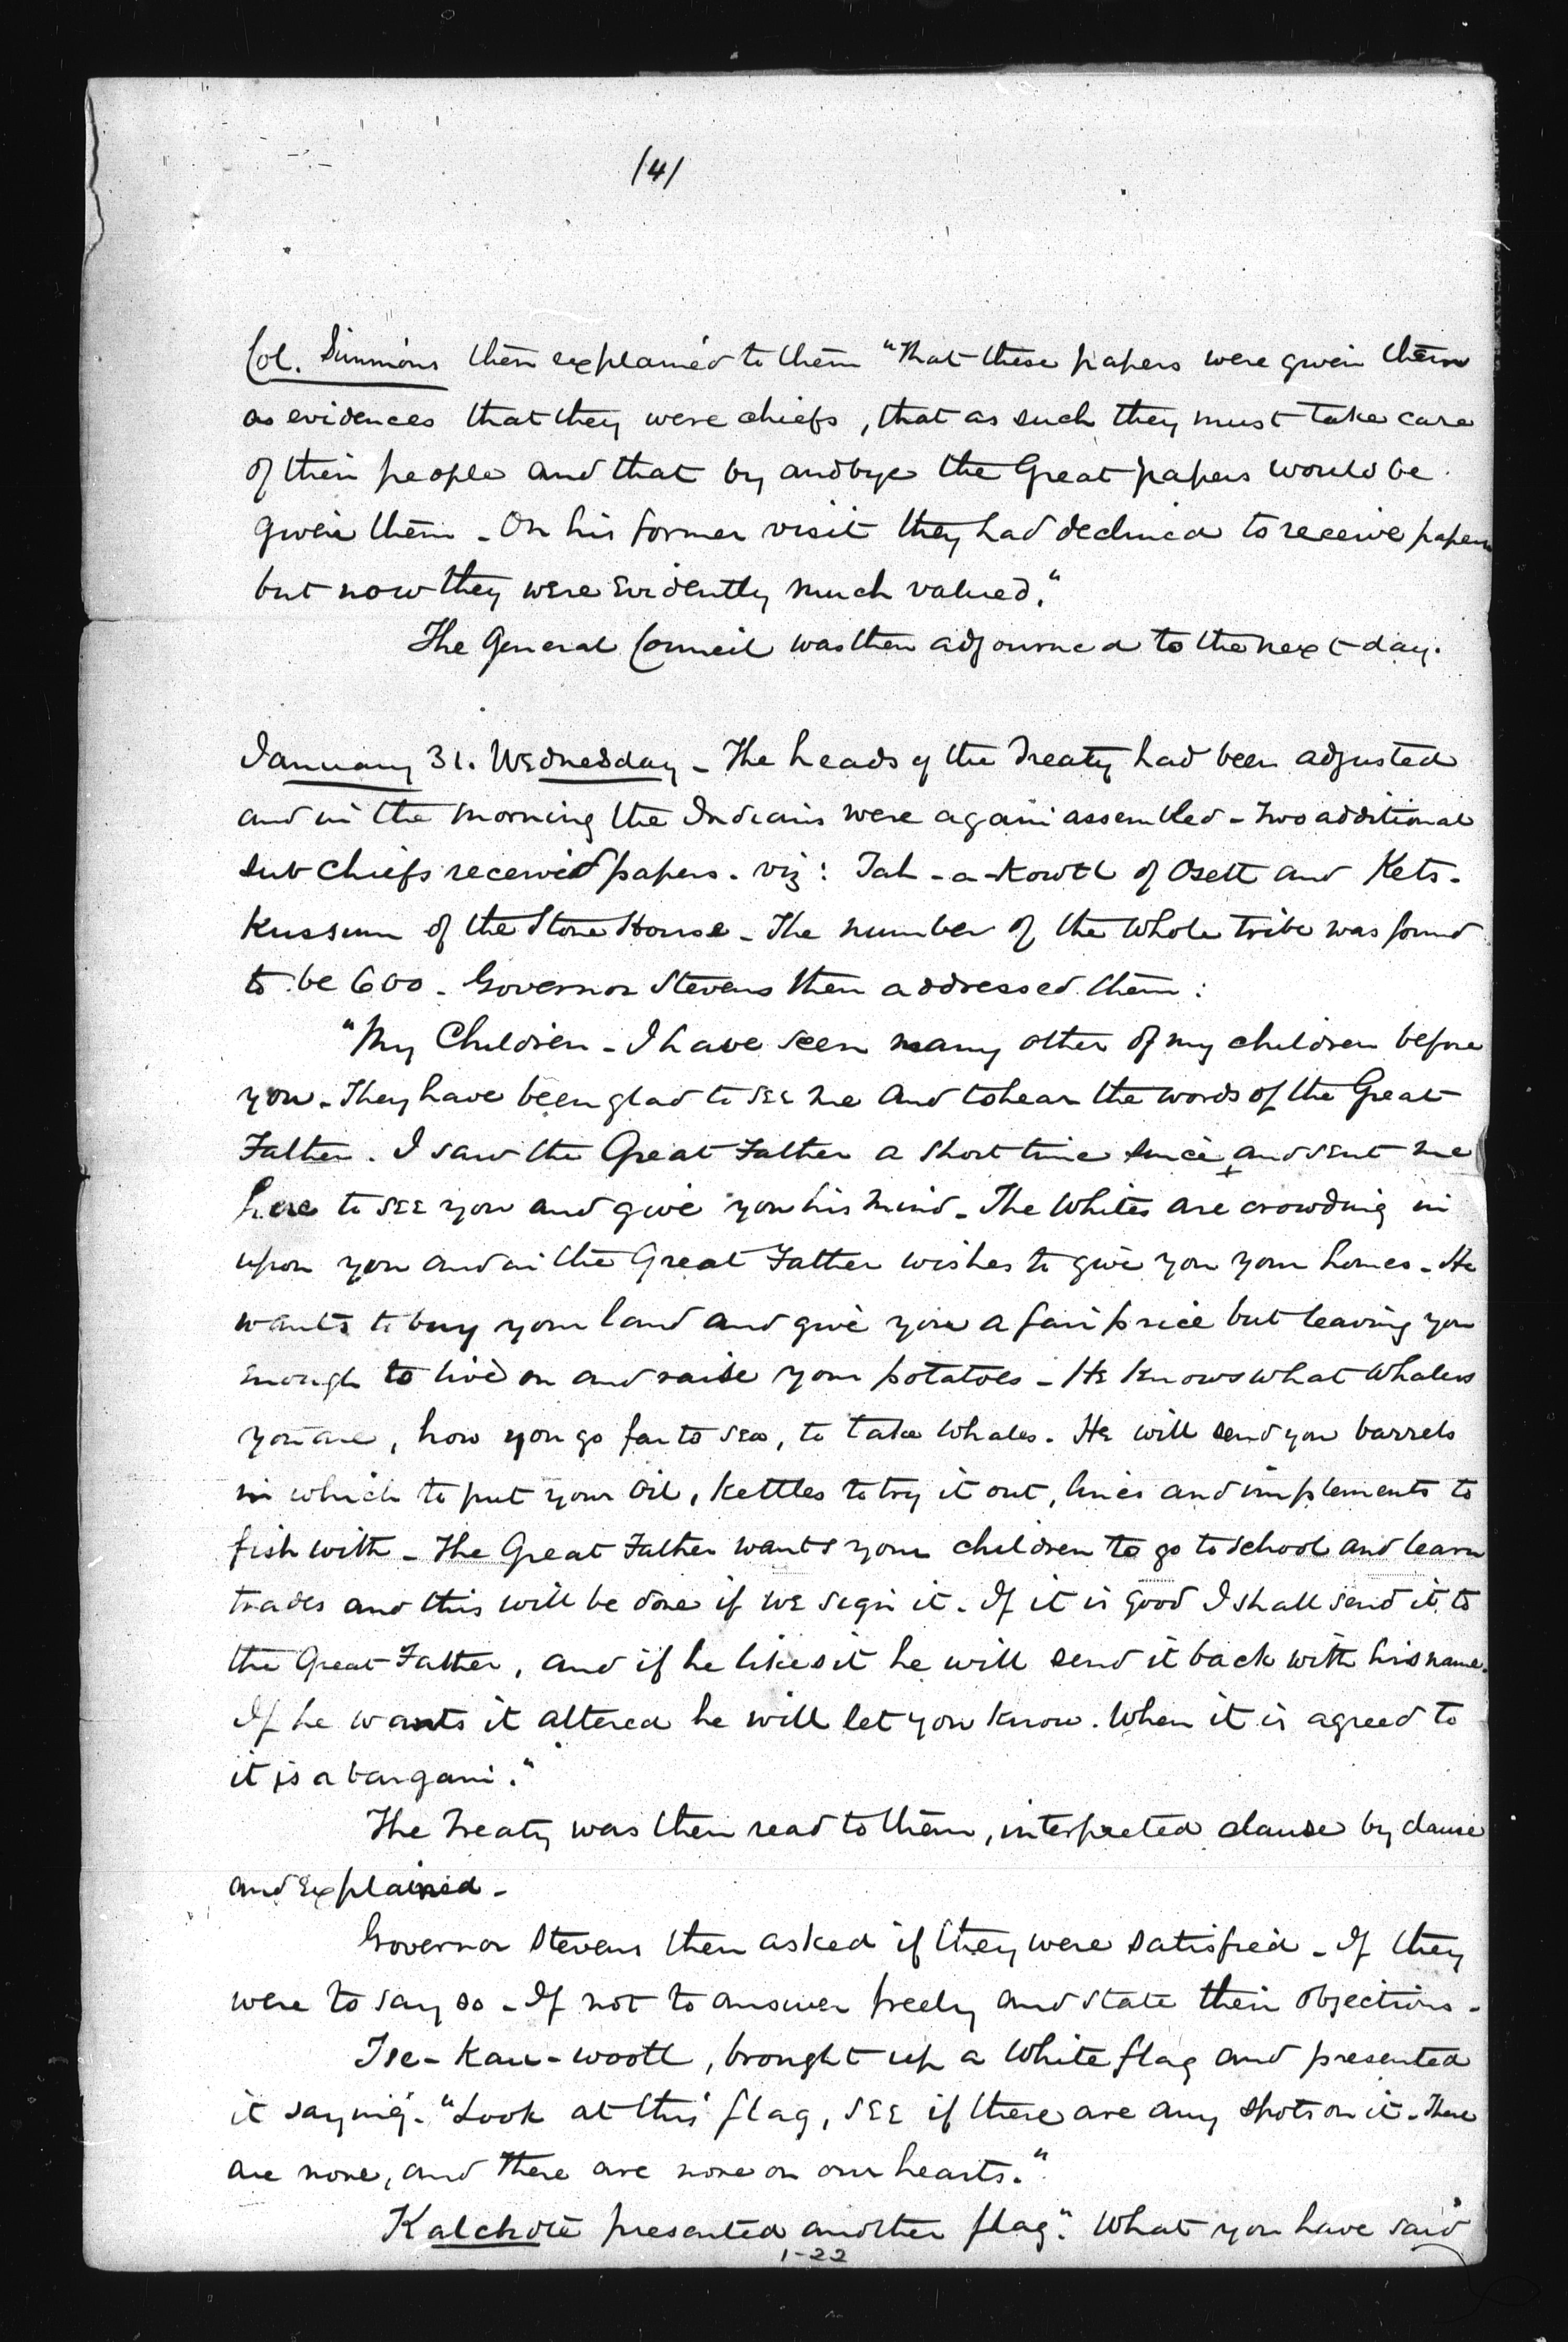 /4/
Col. Simmons then explained to them "that these papers were given them
as evidences that they were chiefs, that as such they must take care
of their people and that by and bye the Great papers would be
given them - On his former visit they had declined to receive papers
but now they were evidently much valued."
The General Council was then adjourned to the next day.
January 31. Wednesday - The heads of the Treaty had been adjusted
and in the morning the Indians were again assembled - Two additional
sub chiefs received papers - viz: Tah-a-Kowtl of Osett and Kets-
Kussum of the Stone House - The number of the whole tribe was found
to be 600 - Governor Stevens then addressed them:
"My Children - I have seen many other of my children before
you - They have been glad to see me and to hear the words of the Great
Father. I saw the Great Father a short time since and sent me
here to see you and give you his mind - The Whites are crowding in
upon you and in the Great Father wishes to give you your homes - He
wants to buy your land and give you a fair price but leaving you
enough to live on and raise your potatoes - He knows what Whalers
you are, how you go far to sea, to take Whales. He will send you barrels
in which to put your oil, kettles to try it out, lines and implements to
fish with - The Great Father wants your children to go to school and learn
trades and this will be done if we sign it - If it is good I shall send it to
the Great Father, and if he likes it he will send it back with his name.
If he wants it altered he will let you know. When it is agreed to
it is a bargain."
The Treaty was then read to them, interpreted clause by clause
and explained -
Governor Stevens then asked if they were satisfied - If they
were to say so - If not to answer freely and state their objections -
Tse-kau-wootl, brought up a White flag and presented
it saying - "Look at this flag, see if there are any spots on it - There
are none, and there are none on our hearts."
Kalchote presented another flag. "What you have said
1-22